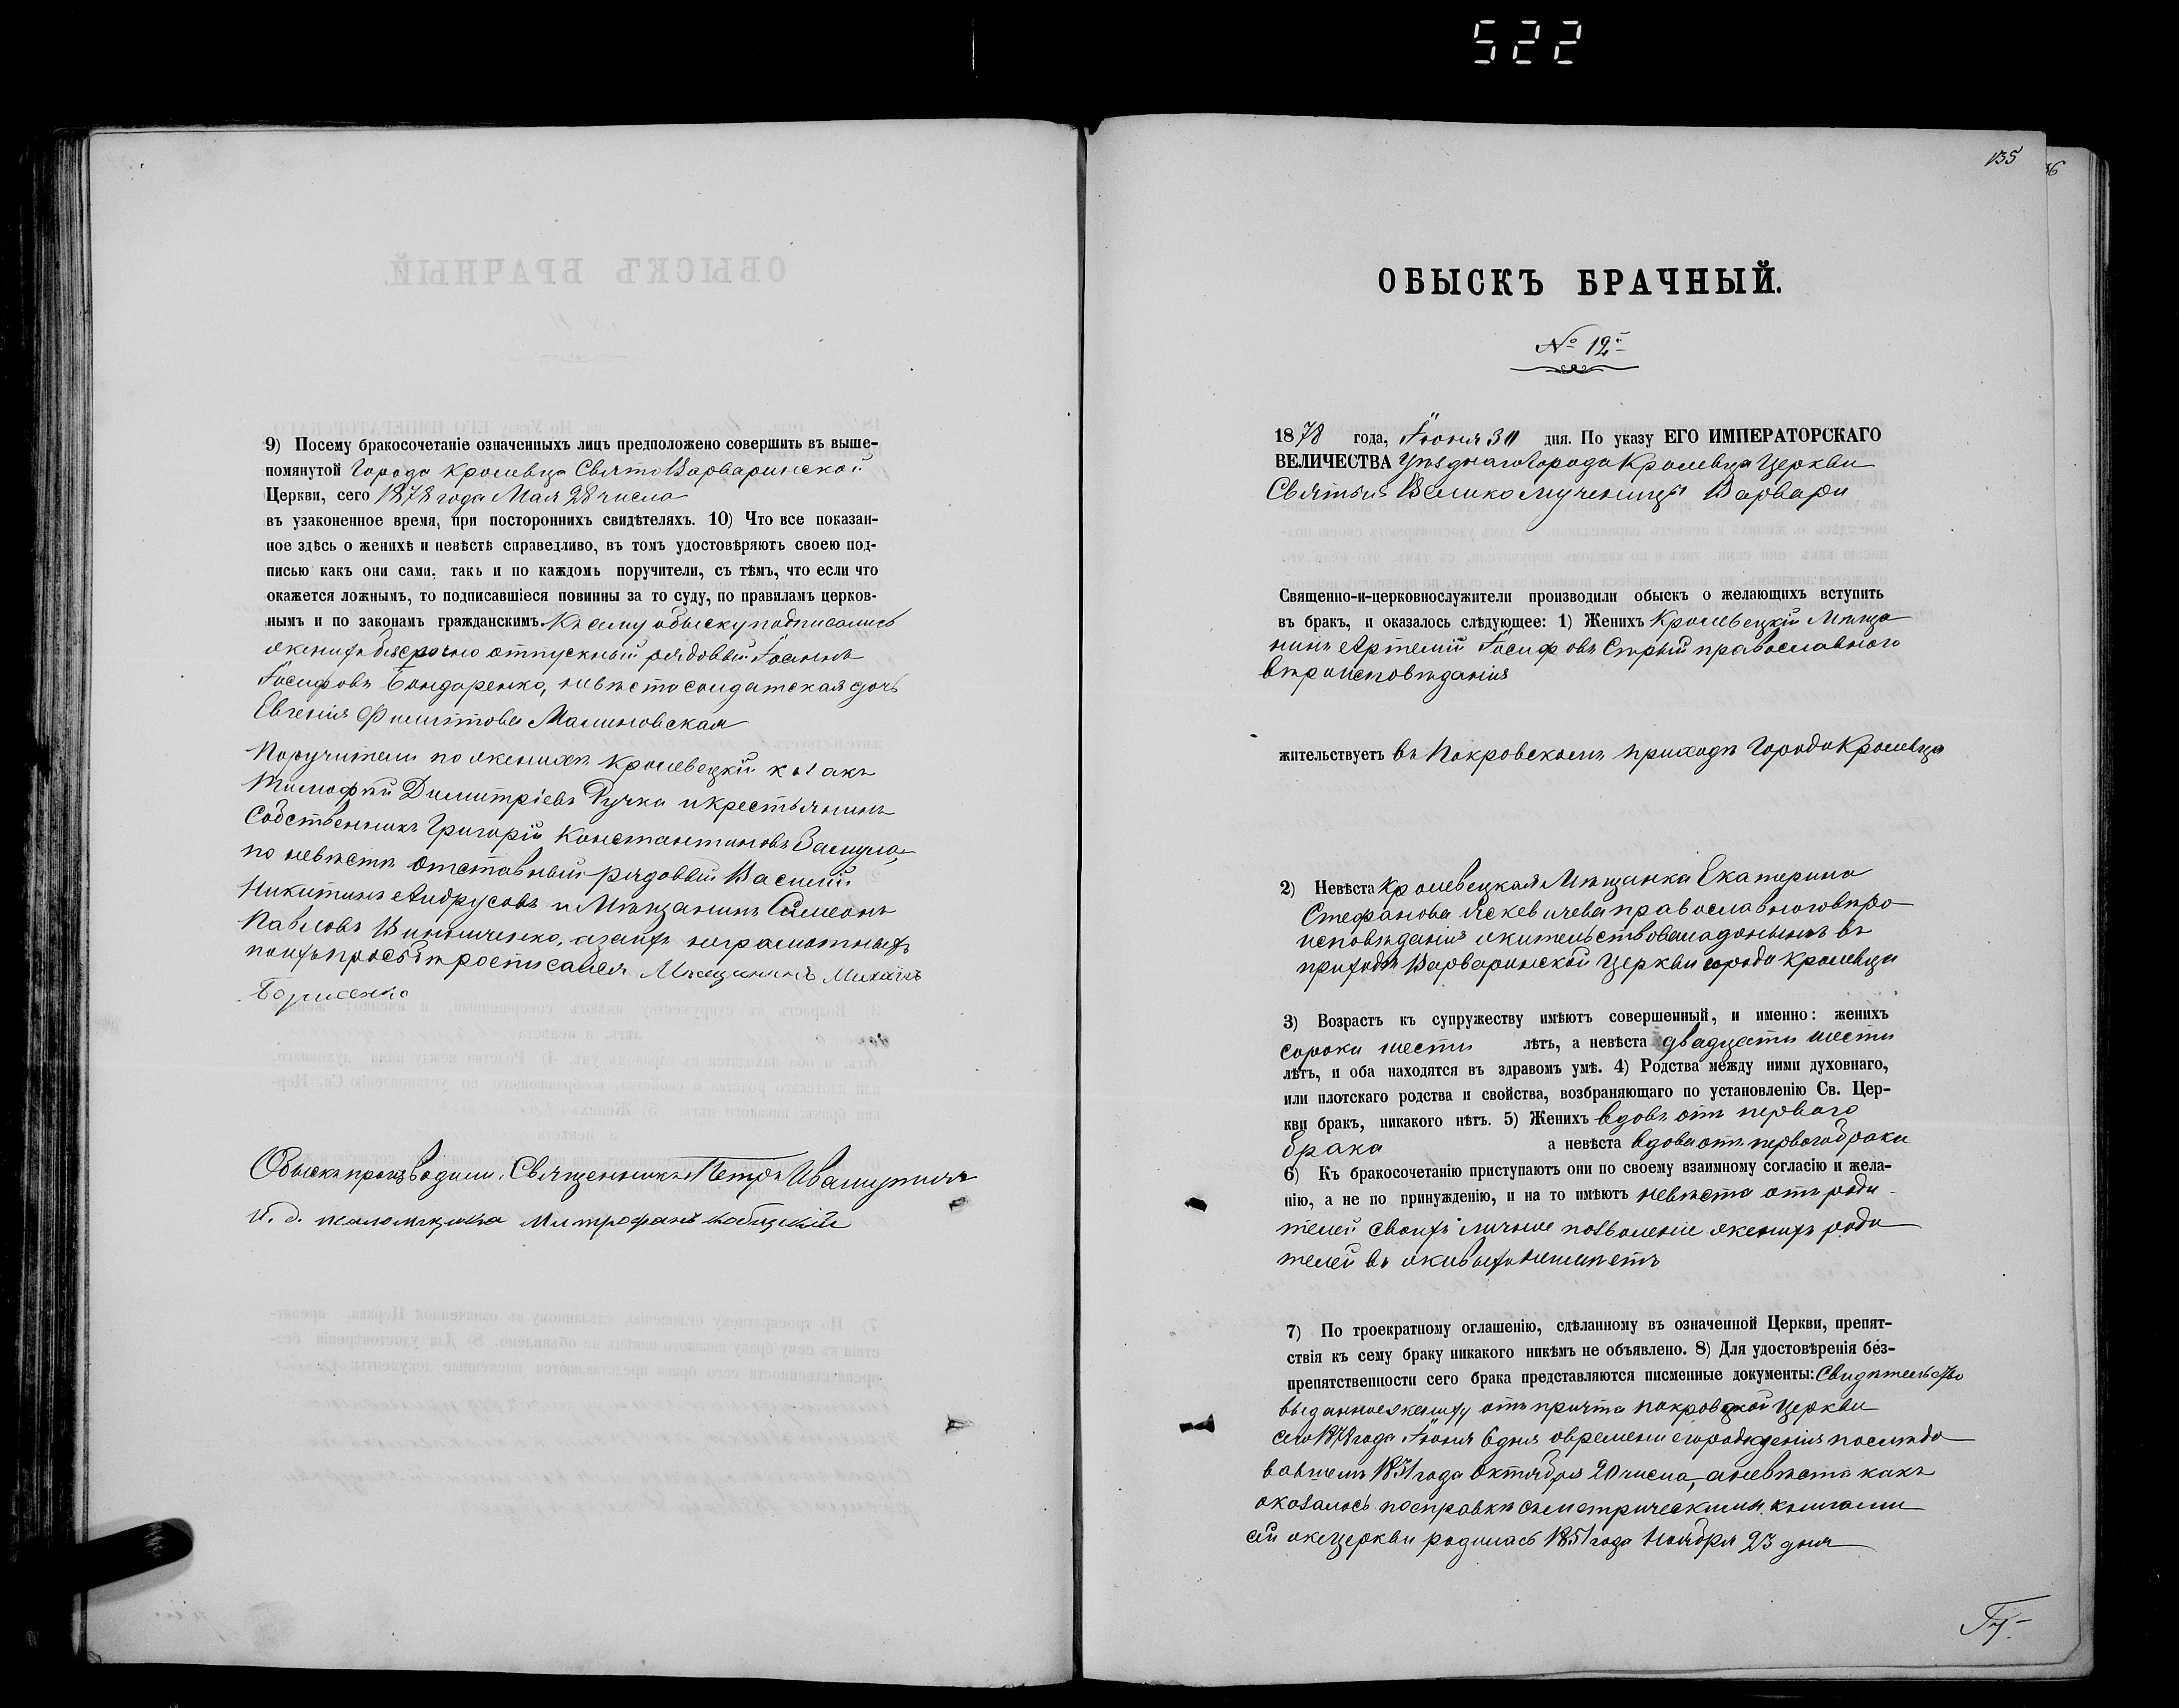 522
9) Посему бракосочетаніе означенныхъ лицъ предположено совершить въ выше-
помянутой Города Кролевца СвятоВарваринской
Церкви, сего 1878 года Мая 28 числа
въ узаконенное время, при постороннихъ свидѣтеляхъ. 10) Что все показан-
ное здѣсь о женихѣ и невѣстѣ справедливо, въ томъ удостовѣряютъ своею под-
писью какъ они сами, такъ и по каждомъ поручители, съ тѣмъ, что если что
окажется ложнымъ, то подписавшіеся повинны за то суду, по правиламъ церков-
нымъ и по законамъ гражданскимъ. Къ сему обыску подписались
женихъ безсрочно отпускный рядовый Іоаннъ
Іосифовъ Бондаренко, невѣста солдатская дочь
Евгенія Филиппова Малиновская
Поручители по женихѣ Кролевецкій козакъ
Тимофѣй Димитріевъ Ручка и крестьянинъ
Собственникъ Григорій Константиновъ
по невѣстѣ отставный рядовый Василій
Никитинъ Андрусовъ и Мѣщанинъ Симеонъ
Павловъ Винниченко, а за ихъ неграмотныхъ
по ихъ просьбѣ росписался Мѣщанинъ Михаилъ
Борисенко
Обыскъ производили: Священникъ Петръ
И. д. псаломщика Митрофанъ
135
36
ОБЫСКЪ БРАЧНЫЙ.
№ 12й
1878 года, Іюня 30 дня. По указу ЕГО ИМПЕРАТОРСКАГО
ВЕЛИЧЕСТВА Уѣзднаго Города Кролевца Церкви
Святыя Великомученицы Варвары
Священно-и-церковнослужители производили обыскъ о желающихъ вступить
въ бракъ, и оказалось слѣдующее: 1) Женихъ Кролевецкій Мѣща
нинъ Артемій Іосифовъ Стрый православнаго
вѣроисповѣданія
жительствуетъ въ Покровскомъ приходѣ Города Кролевца
2) Невѣста Кролевецкая Мѣщанка Екатерина
Стефанова православнаго вѣро
исповѣданія жительствовала донынѣ въ
приходѣ Варваринской Церкви города Кролевца
3) Возрастъ къ супружеству имѣютъ совершенный, и именно: женихъ
сорока шести лѣтъ, а невѣста двадцати шести
лѣтъ, и оба находятся въ здравомъ умѣ. 4) Родства между ними духовнаго,
или плотскаго родства и свойства, возбраняющаго по установленію Св. Цер-
кви бракъ, никакого нѣтъ. 5) Женихъ вдовъ отъ перваго
брака а невѣста вдова отъ перваго брака
6) Къ бракосочетанію приступаютъ они по своему взаимному согласію и жела-
нію, а не по принужденію, и на то имѣютъ невѣста отъ роди
телей своихъ личное позволеніе женихъ роди
телей въ живыхъ неимѣетъ
7) По троекратному оглашенію, сдѣланному въ означенной Церкви, препят-
ствія къ сему браку никакого никѣмъ не объявлено. 8) Для удостовѣренія без-
препятственности сего брака представляются писменные документы: Свидѣтельство
выданное жениху отъ причта Покровской Церкви
сего 1878 года Іюня 6 дня о времени его рожденія послѣдо
вавшемъ 1831 года Октября 20 числа, а невѣста какъ
оказалось по справкѣ съ метрическими книгами
сей же церкви родилась 1851 года Ноября 23 дня